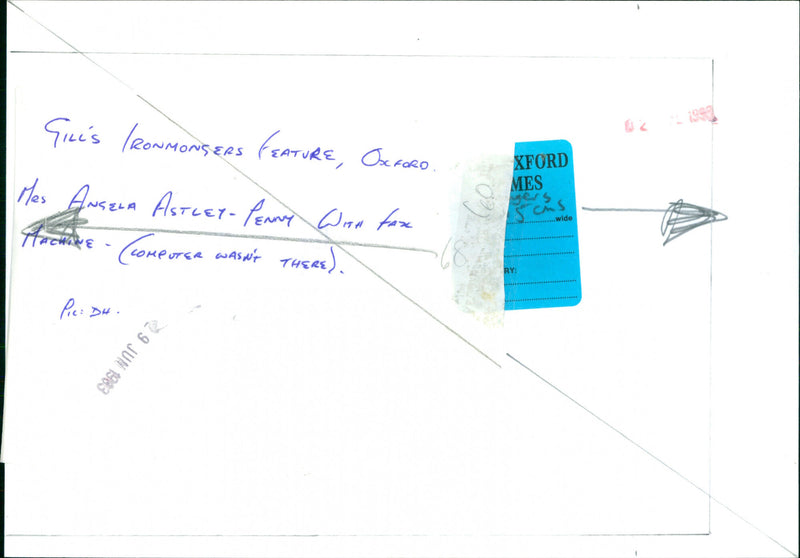 GILL'S IRONMONGERS FEATURE, OXFORD.
MRS ANGELA ASTLEY-PENNY WITH FAX
MACHINE - (COMPUTER WASN'T THERE).
PIC: DH.
29 JUN 1993
XFORD
MES
gers
5 cms
wide
RY: